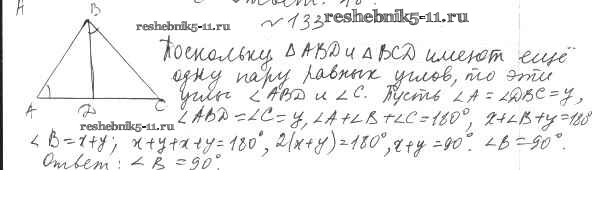 A B reshebnik5-11.ru № 133 reshebnik5-11.ru
Поскольку △ABD и △BCD имеют ещё
одну пару равных углов, то эти
углы ∠ABD и ∠C. Пусть ∠A = ∠DBC = y,
A D C ∠ABD = ∠C = y, ∠A + ∠B + ∠C = 180°, x + ∠B + y = 180°
reshebnik5-11.ru
∠B = x + y; x + y + x + y = 180°, 2(x + y) = 180°, x + y = 90°. ∠B = 90°.
Ответ: ∠B = 90°.